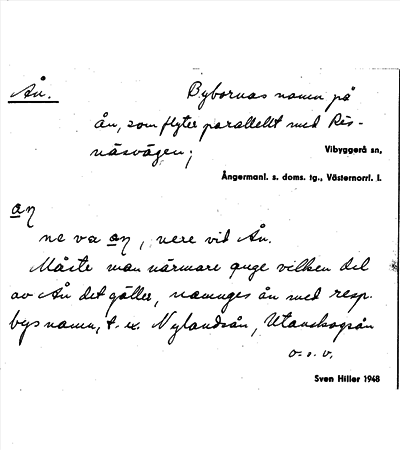 Ån.
Bybornas namn på
ån, som flyter parallellt med Res-
näsvägen;
Vibyggerå sn,
Ångermanl. s. doms. tg., Västernorrl. l.
an
ne va an, nere vid Ån.
Måste man närmare ange vilken del
av Ån det gäller, namnges ån med resp.
bys namn, t. ex. Nylandsån, Utanskogsån
o. s. v.
Sven Hiller 1948